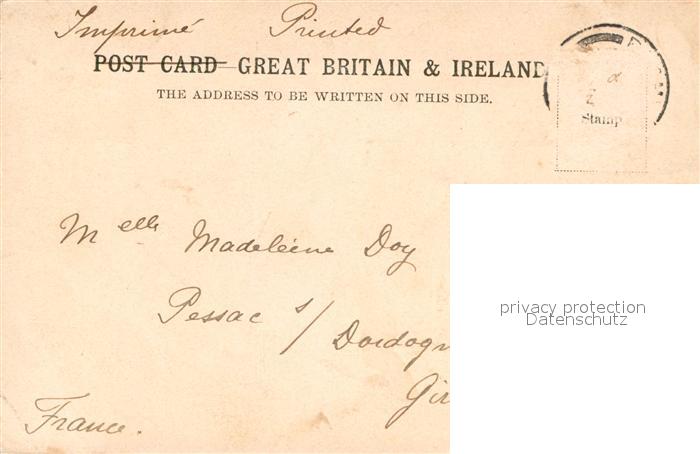 Imprimé Printed
POST CARD GREAT BRITAIN & IRELAND
THE ADDRESS TO BE WRITTEN ON THIS SIDE.
Stamp
Melle Madeleine Doy
Pessac s/
Dordogn
Gir
France.
privacy protection
Datenschutz